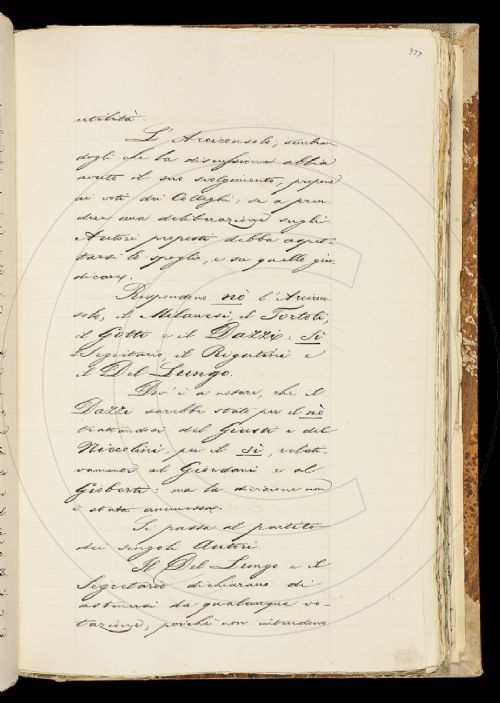 977
utilità.
L'Arciconsolo, sembran-
dogli che la discussione abbia
avuto il suo svolgimento, propone
ai voti dei Colleghi: se a pren-
dere una deliberazione sugli
Autori proposti debba aspet-
tarsi lo spoglio, e su quello giu-
dicare.
Rispondono nò l'Arcicon-
solo, il Milanesi, il Tortoli,
il Gotti e il Dazzi: Sì
il Segretario, il Rigutini e
il Del Lungo.
Dov'è a notare, che il
Dazzi sarebbe stato per il nò
trattandosi del Giusti e del
Niccolini, per il sì, relati-
vamente al Giordani e al
Gioberti: ma la divisione non
è stata ammessa.
Si passa al partito
dei singoli Autori.
Il Del Lungo e il
Segretario dichiarano di
astenersi da qualunque vo-
tazione, poichè non intendono